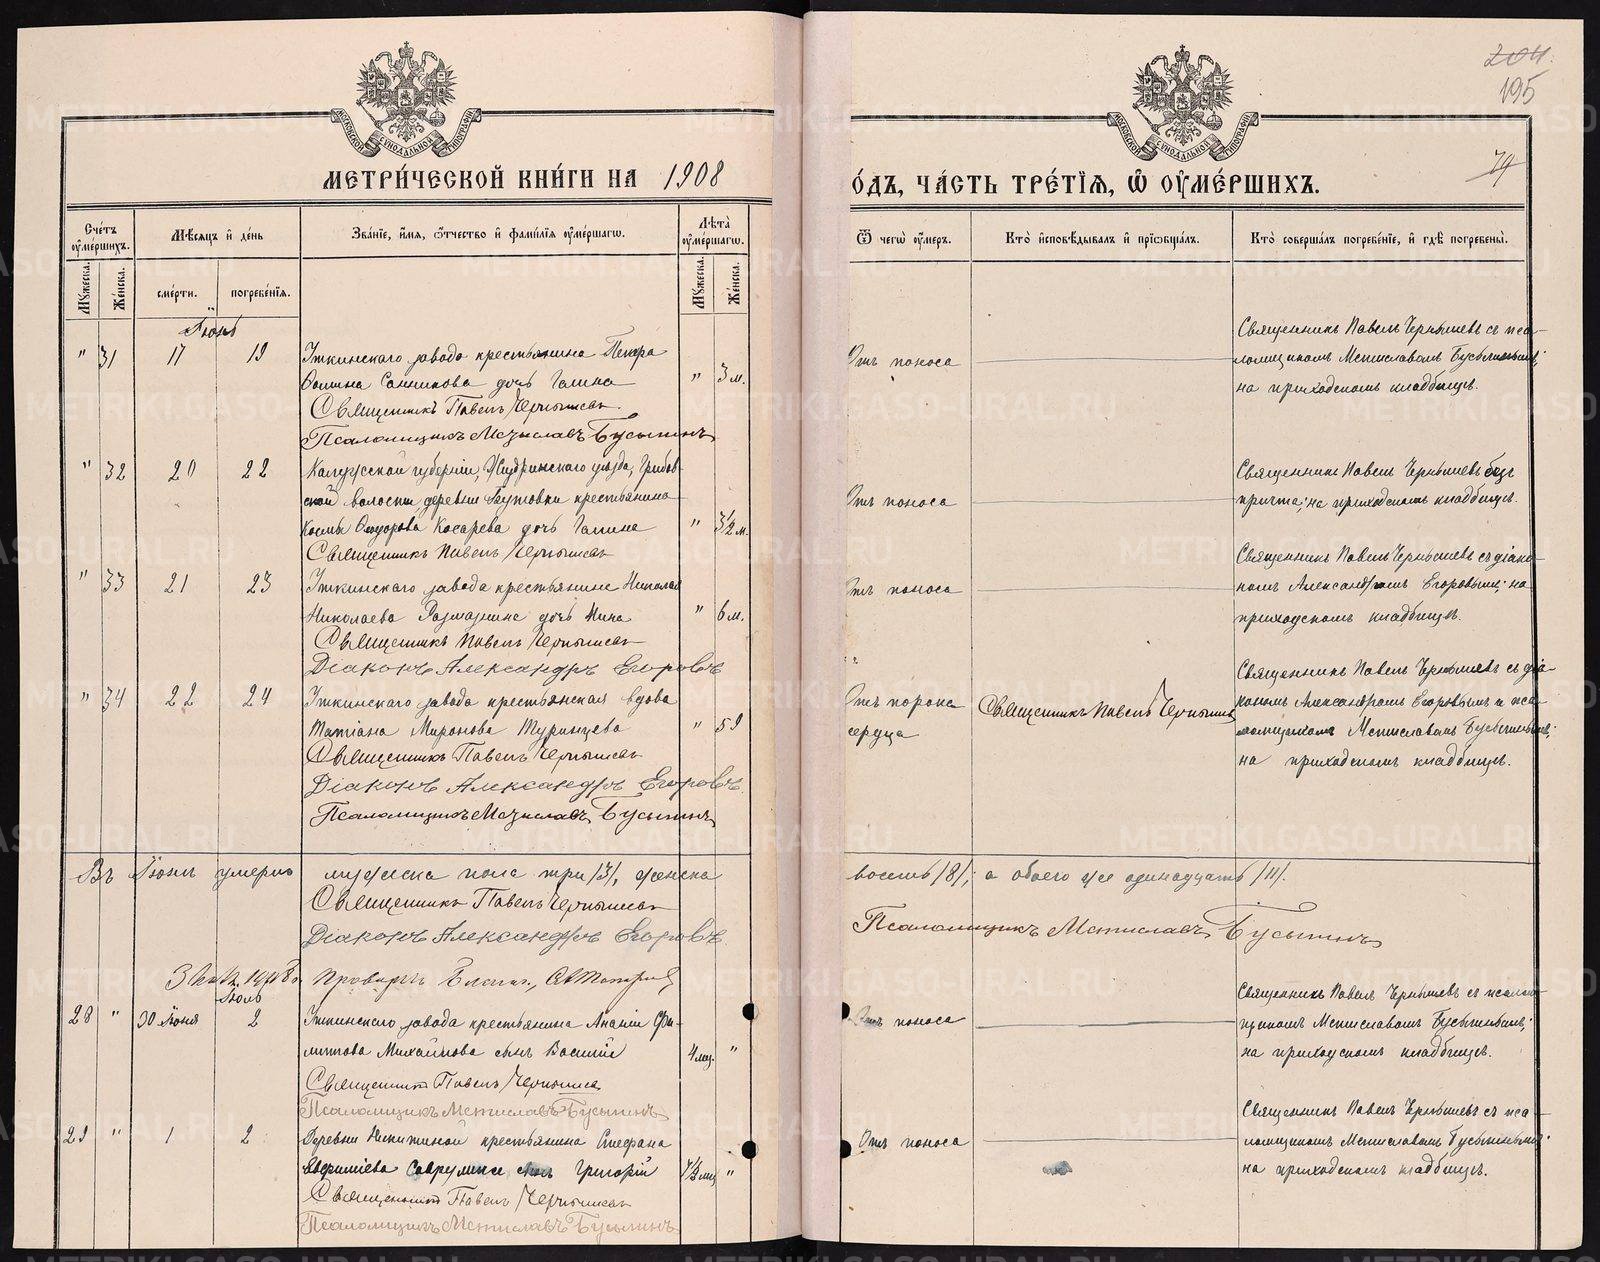 204.
195
79
МОСКОВСКОЙ СѴНОДАЛЬНОЙ ТИПОГРАФІИ
МОСКОВСКОЙ СѴНОДАЛЬНОЙ ТИПОГРАФІИ
МЕТРИ́ЧЕСКОЙ КНИ́ГИ НА 1908
О́ДЪ, ЧА́СТЬ ТРЕ́ТІЯ, Ѿ ОУ҆МЕ́РШИХЪ.
Сче́тъ оу҆ме́ршихъ.
Мѣ́сяцъ и҆ де́нь
Зва́ніе, и҆́мя, ѻ҆́тчество и҆ фами́лія оу҆ме́ршагѡ.
Лѣ́та оу҆ме́ршагѡ.
Ѿ чегѡ̀ оу҆́меръ.
Кто̀ и҆сповѣ́дывалъ и҆ прїѡбща́лъ.
Кто̀ соверша́лъ погребе́ніе, и҆ гдѣ̀ погребены̀.
Му́жеска.
Же́нска.
сме́рти.
погребе́нія.
Му́жеска.
Же́нска.
Іюнь
" 31 17 19 Уткинскаго завода крестьянина Петра
Фомина Санникова дочь Галина " 3 м.
Священникъ Павелъ Чернышевъ
Псаломщикъ Мстиславъ Бусыгинъ
Отъ поноса
Священникъ Павелъ Чернышевъ съ пса-
ломщикомъ Мстиславомъ Бусыгинымъ;
на приходскомъ кладбищѣ.
" 32 20 22 Калужской губерніи, Жиздринскаго уѣзда,
ской волости, деревни крестьянина
Космы Ѳедорова Косарева дочь Галина " 3½ м.
Священникъ Павелъ Чернышевъ
Отъ поноса
Священникъ Павелъ Чернышевъ безъ
причта; на приходскомъ кладбищѣ.
" 33 21 23 Уткинскаго завода крестьянина Николая
Николаева дочь Нина " 6 м.
Священникъ Павелъ Чернышевъ
Діаконъ Александръ Егоровъ
Отъ поноса
Священникъ Павелъ Чернышевъ съ діако-
номъ Александромъ Егоровымъ; на
приходскомъ кладбищѣ.
" 34 22 24 Уткинскаго завода крестьянская вдова
Татіана Миронова Туринцева " 59
Священникъ Павелъ Чернышевъ
Діаконъ Александръ Егоровъ
Псаломщикъ Мстиславъ Бусыгинъ
Отъ порока
сердца
Священникъ Павелъ Чернышевъ
Священникъ Павелъ Чернышевъ съ діа-
кономъ Александромъ Егоровымъ и пса-
ломщикомъ Мстиславомъ Бусыгинымъ;
на приходскомъ кладбищѣ.
Въ Іюнѣ умерло мужеска пола три /3/, женска
восемь /8/; а обоего же одинадцать /11/.
Священникъ Павелъ Чернышевъ
Діаконъ Александръ Егоровъ
Псаломщикъ Мстиславъ Бусыгинъ
Іюль
28 " 30 Іюня 2 Уткинскаго завода крестьянина Ананіи Фи-
липпова Михайлова сынъ Василій 4 мц. "
Священникъ Павелъ Чернышевъ
Псаломщикъ Мстиславъ Бусыгинъ
Отъ поноса
Священникъ Павелъ Чернышевъ съ псалом-
щикомъ Мстиславомъ Бусыгинымъ;
на приходскомъ кладбищѣ.
29 " 1 2 Деревни Никитиной крестьянина Стефана
сынъ Григорій "
Священникъ Павелъ Чернышевъ
Псаломщикъ Мстиславъ Бусыгинъ
Отъ поноса
Священникъ Павелъ Чернышевъ съ пса-
ломщикомъ Мстиславомъ Бусыгинымъ;
на приходскомъ кладбищѣ.
METRIKI.GASO-URAL.RU